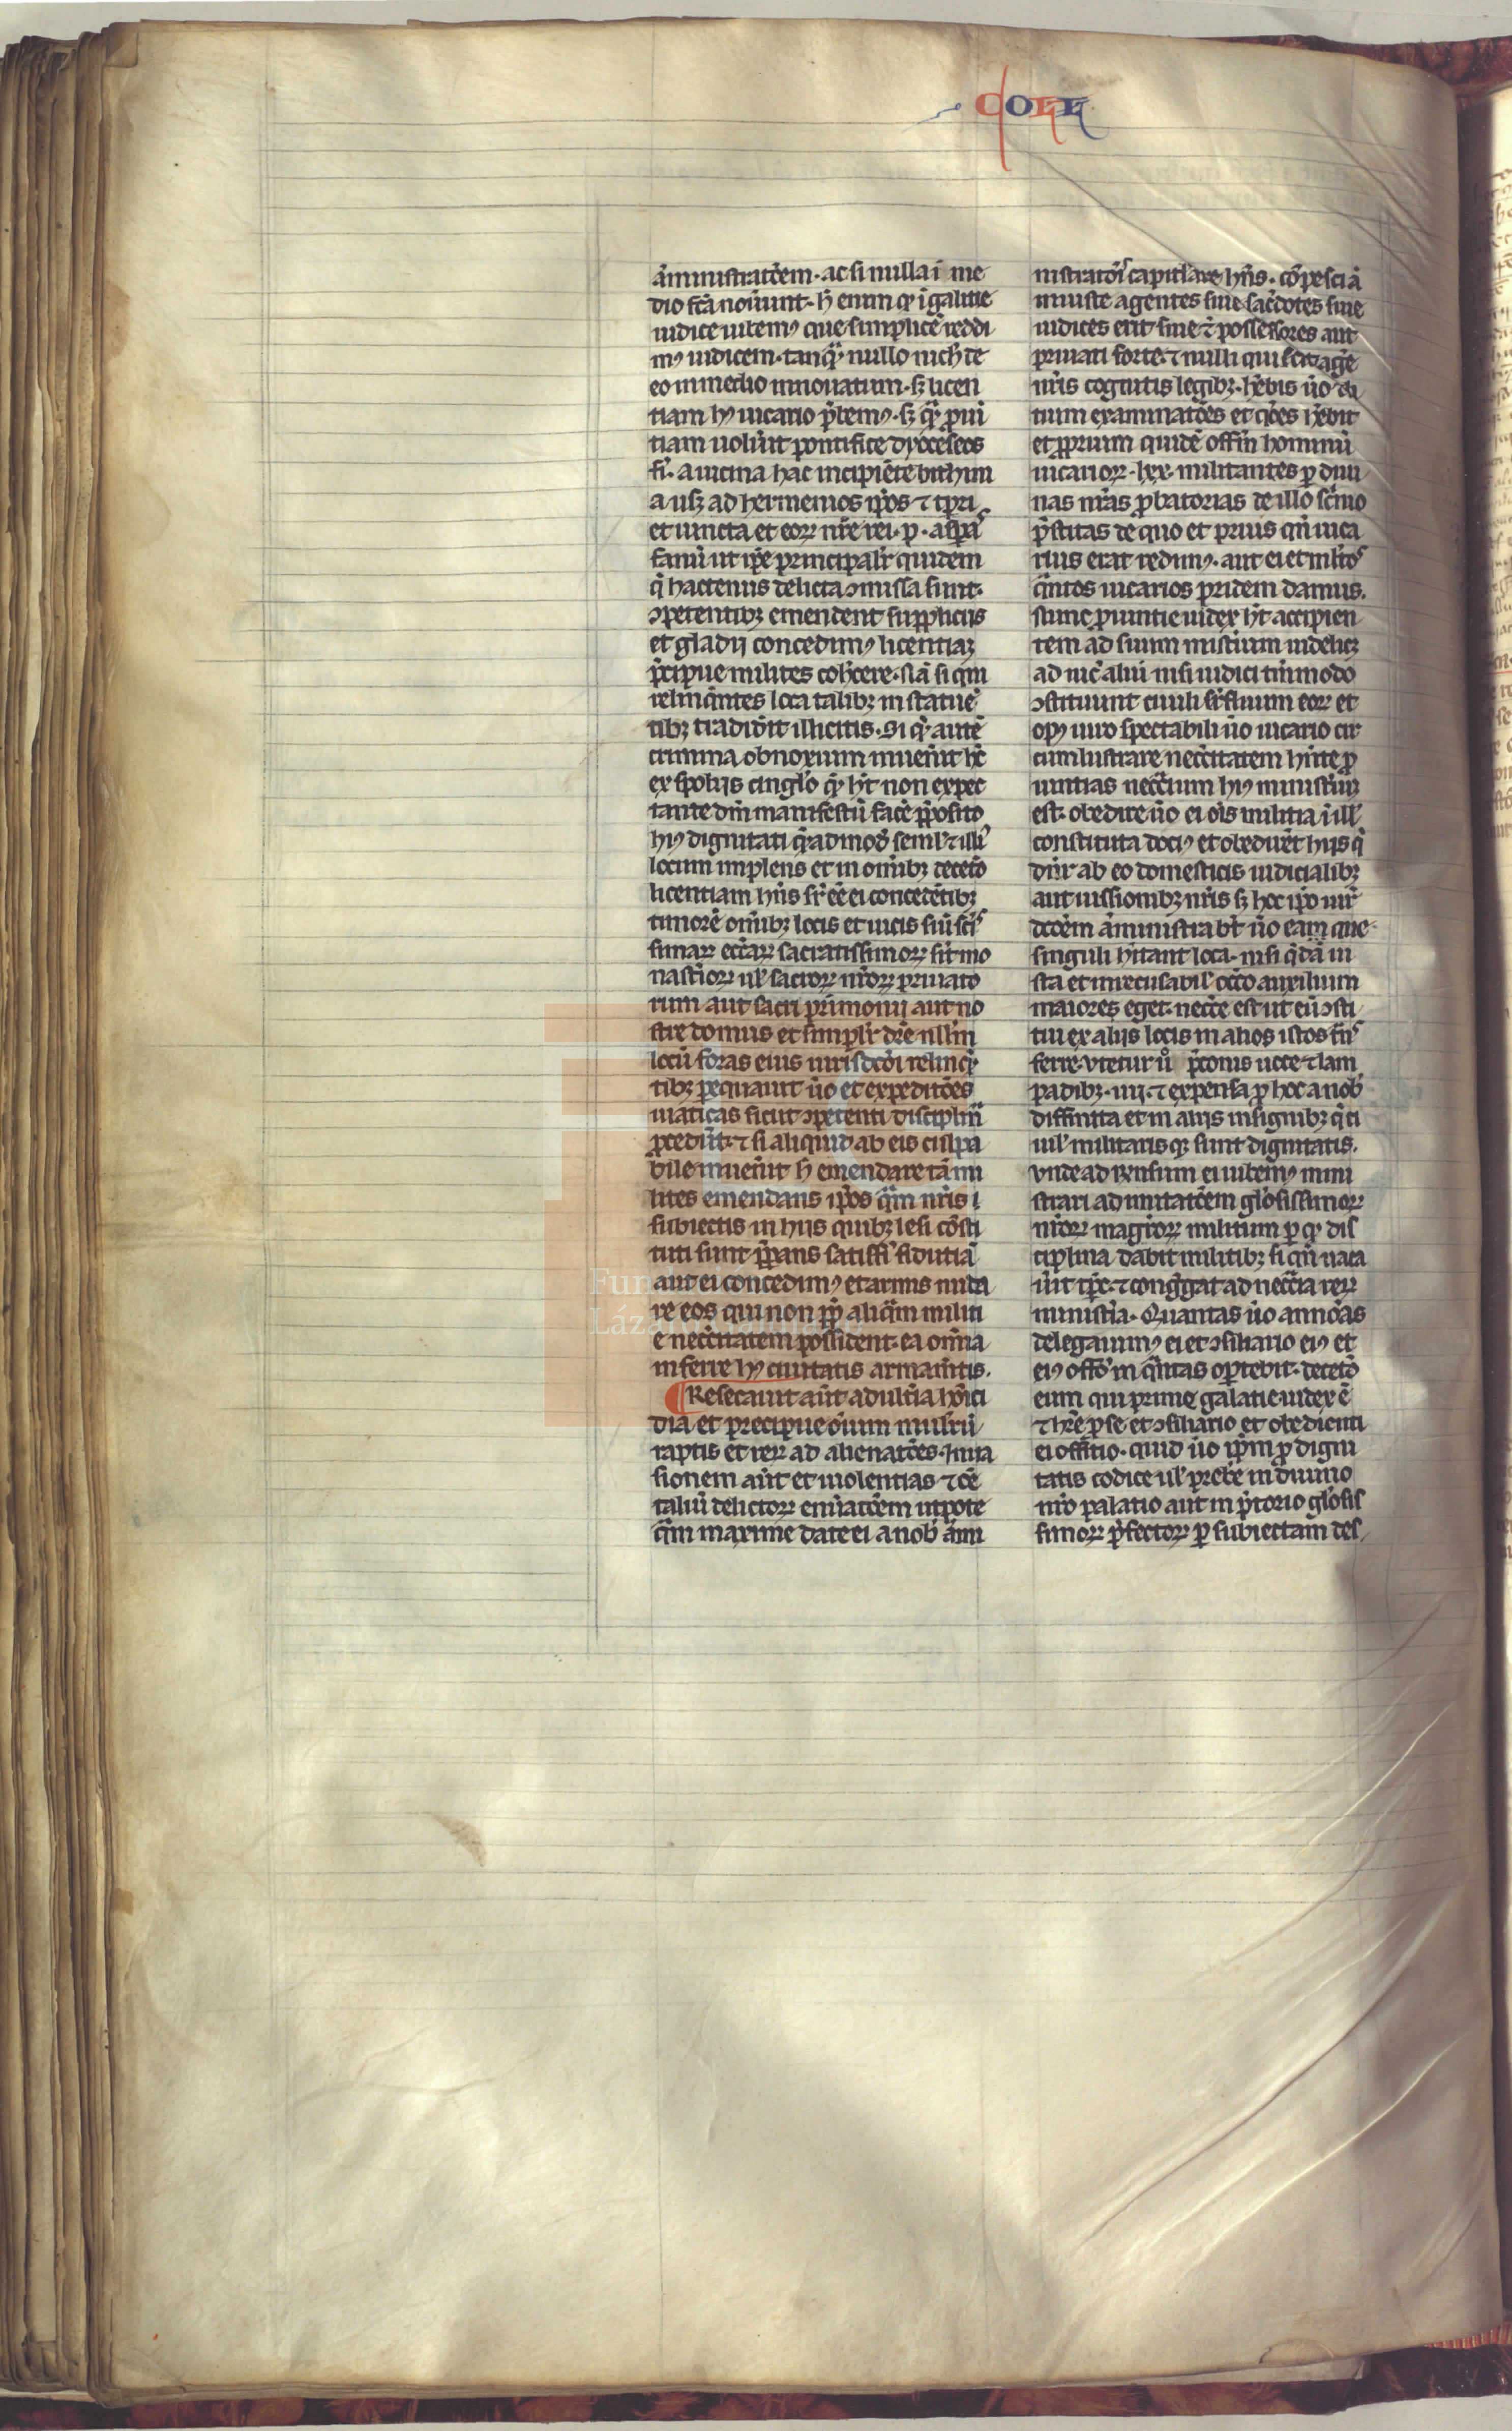 COLL
am̄inistratōem · ac si nulla ī me
dio fc̄a noūunt · h̄ enim qͥ ī galatie
iudice iubemꝰ que simplicē reddi
mꝰ iudicem · tanqͣ nullo nich̄ de
eo in medio innouatum · sꝫ licen
tiam hꝰ uicario p̄bemꝰ · sꝫ qͣ ꝓui
tiam uolūit pontifice dyoceseos
fi · a uicina hac incipiēte bithini
a usqꝫ ad hermenios ip̄os ⁊ tpri
et iuncta et eoꝝ
fanū ut ip̄e principalr̄ quidem
q̄ hactenus delicta ꝯmissa sunt ·
ꝯpetentibꝫ emendent suppliciis
et gladij concedimꝰ licentiaꝫ
p̄cipue milites coh̄cere · siā si qui
relinq̄ntes loca talibꝫ in statue
tibꝫ tradiderīt illicitis · Si qͥ autē
crimina obnoxium inuen̄it hc̄
ex spolijs cinglo qͥ h̄t non expec
tante dm̄ manifestū facē p̄posito
hꝰ dignitati q̄admod̄ seml̄ ⁊ illi
locum implens et in om̄ibꝫ deceto
licentiam hn̄s sr̄ eē ei concedētibꝫ
timorē om̄ibꝫ locis et uicis siū sc̄i
simaꝝ ecc̄aꝝ sacratissimoꝝ sit mo
nast̄ioꝝ ul̄ sacroꝝ nr̄oꝝ priuato
rum aut sacri pr̄imonij aut no
stre domus et simplr̄ dr̄e nll̄m
locū foras eius iurisdc̄ōi relinq̄
tibꝫ ꝑequauit ūo et expeditōes
uiaticas sicut ꝯpetenti disciplin̄
ꝓcedūt · ⁊ si aliquid ab eis culpa
bile inuen̄it h̄ emendare tā mi
lites emendans ip̄os qͣm nr̄is i
subiectis in hijs quibꝫ lesi cōsti
tuti sunt p̄parans satisfī fidutiā
aut ei concedimꝰ et armis nuda
re eos qui non ꝓp̄ aliq̄m militi
e necc̄itatem possident · ea om̄ia
inferre hꝰ ciuitatis armam̄tis ·
¶ Resecauit aūt adult̄ia hōici
dia et precipue oīum mulr̄ū
raptis et reꝝ ad alienatōes · inua
sionem aūt et uiolentias ⁊ cē
taliū delictoꝝ em̄datōem utpote
qͣm maxime date ei a nob̄ am̄i
nistratōi capitlare hn̄s · cōpesci ā
iniuste agentes siue sac̄dotes siue
iudices erit siue ⁊ possessores aut
priuati forte · ⁊ nulli qui licꝫ agē
nr̄is cognitis legibꝫ · hēbis ūo om̄
nium examinatōes et q̄oes hēbit
et ꝓprium quidē offīm hominū
uicarioꝝ · lxx · militantes ꝑ diui
nas nr̄as ꝓbatorias de illo sc̄nio
p̄stitas de quo et prius qn̄ uica
rius erat redimꝰ · aut ei et mlr̄os
qͣntos uicarios pridem damus ·
nunc ꝓuintie iudex h̄t accipien
tem ad suum mistium uidelicꝫ
ad nic̄ alui nisi iudici tm̄modo
ꝯstituunt ciuili fr̄suum eoꝝ et
opꝰ uiro spectabili ūo uicario cir
cumlustrare necc̄itatem hn̄te ꝓ
uintias necc̄ium hꝰ minist̄iuꝫ
est · obedire ūo ei ois militia ī ill̄
constituta docꝰ et obediūt hijs q̄
dnr̄ ab eo domesticis iudicialibꝫ
aut iussionibꝫ nr̄is sꝫ hoc ip̄o iur̄
dcōem am̄inistrabt̄ ūo eam que
singuli hītant loca · nisi q̄dā iu
sta et irrecusabil̄ occō auxilium
maiores eget · necc̄e est ut eū ꝯsti
tiu ex alijs locis in alios istos tn̄s
ferre · Vtetur ū p̄conis uoce ⁊ lam
padibꝫ · iiij · ⁊ expensa ꝓ hoc a nob̄
diffinita et in alijs insignibꝫ q̄ ci
uil̄ militaris qꝫ sunt dignitatis ·
Vnde ad usum ei iubemꝰ mini
strari ad imitatōem gl̄osissimoꝝ
nr̄oꝝ magr̄oꝝ militum ꝑ qͥ dis
ciplina dabit militibꝫ si qn̄ uaca
ūit tp̄e · ⁊ cong̾gat ad necc̄ia reꝝ
minist̄ia · Quantas ūo annōas
delegauimꝰ ei et ꝯsiliario eiꝰ et
eiꝰ offō in qͣntas oportebit · deceto
eum qui prime galatie · iudex ē
⁊ hr̄e ꝓ se et ꝯsiliario et obedienti
ei offitio · quid ūo ip̄m ꝓ digni
tatis codice ul̄ prebē in diuino
nr̄o palatio aut in p̄torio gl̄osis
simoꝝ p̄fectoꝝ ꝑ subiectam des